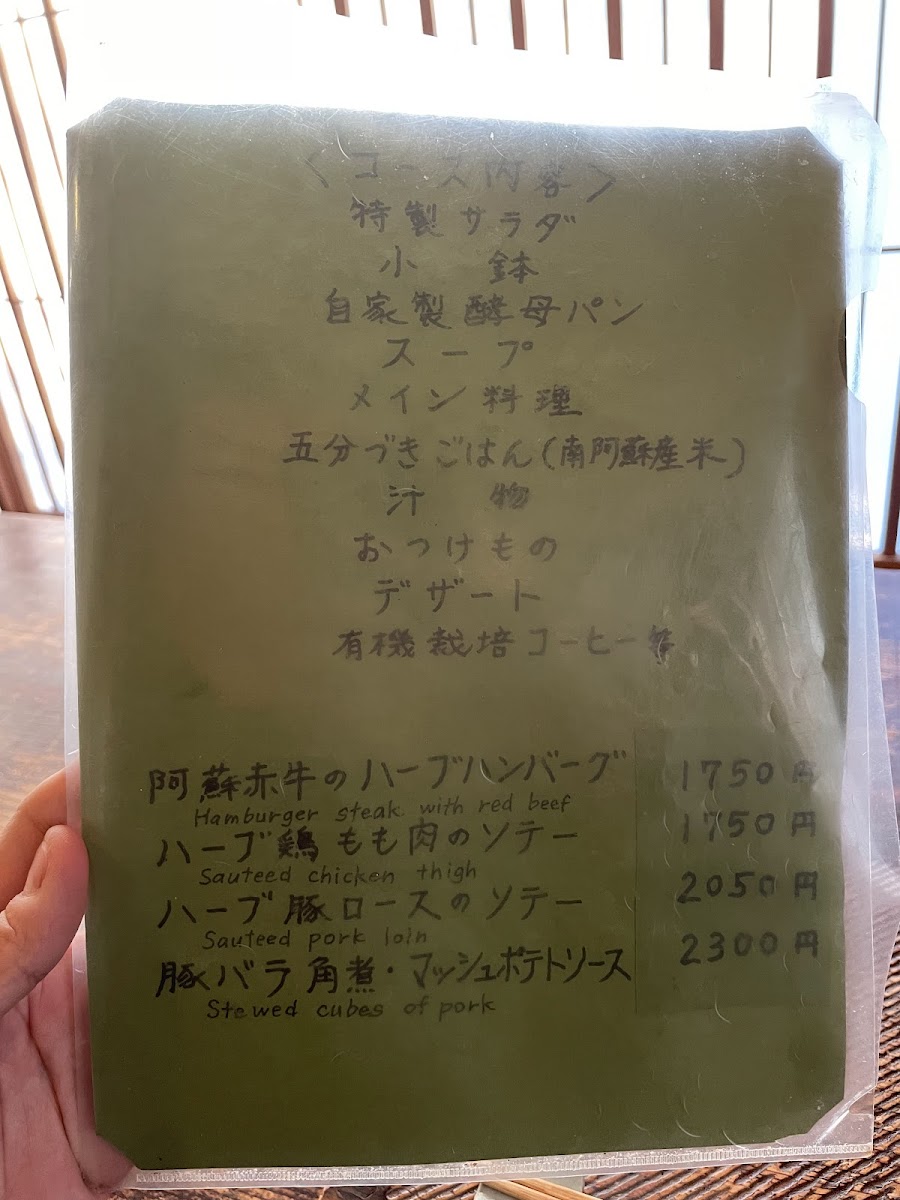 〈コース内容〉
特製サラダ
小鉢
自家製酵母パン
スープ
メイン料理
五分づきごはん(南阿蘇産米)
汁物
おつけもの
デザート
有機栽培コーヒー等
阿蘇赤牛のハーブハンバーグ 1750円
Hamburger steak with red beef
ハーブ鶏もも肉のソテー 1750円
Sauteed chicken thigh
ハーブ豚ロースのソテー 2050円
Sauteed pork loin
豚バラ角煮・マッシュポテトソース 2300円
Stewed cubes of pork